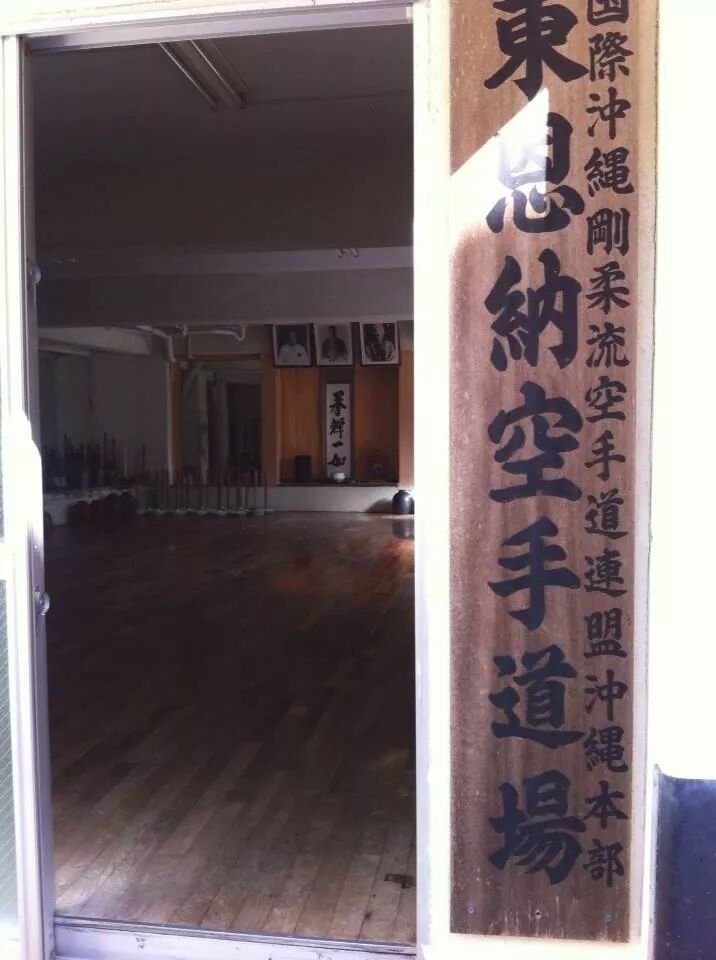 国際沖縄剛柔流空手道連盟沖縄本部
東恩納空手道場
拳禅一如